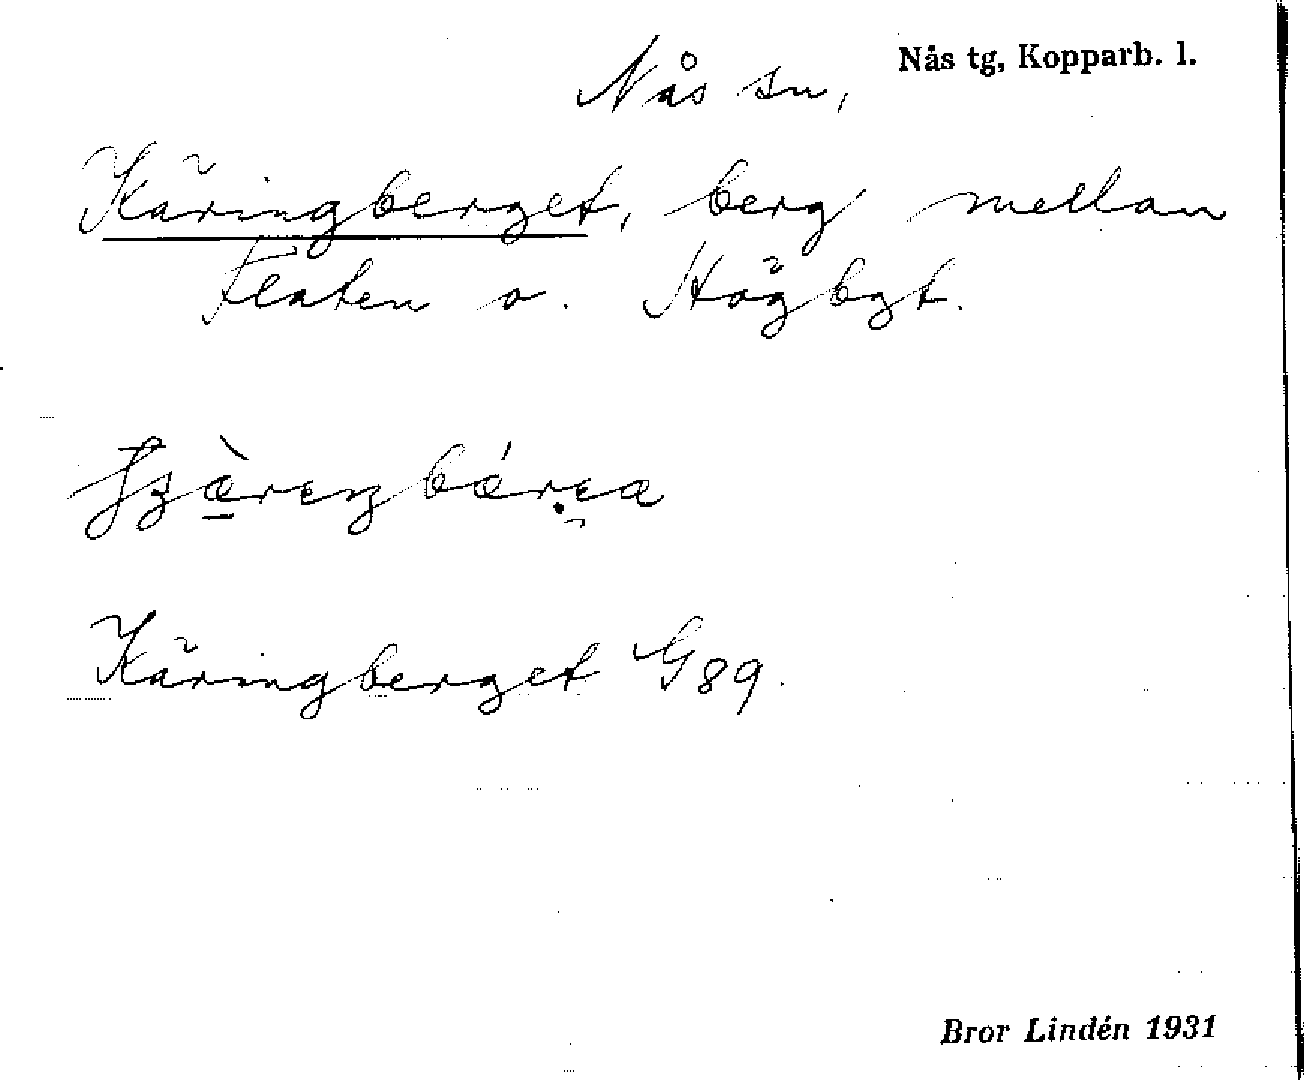 Nås tg, Kopparb. l.
Nås sn,
Käringberget, berg mellan
Flaten o. Högbgt.
Käringberget G89.
Bror Lindén 1931